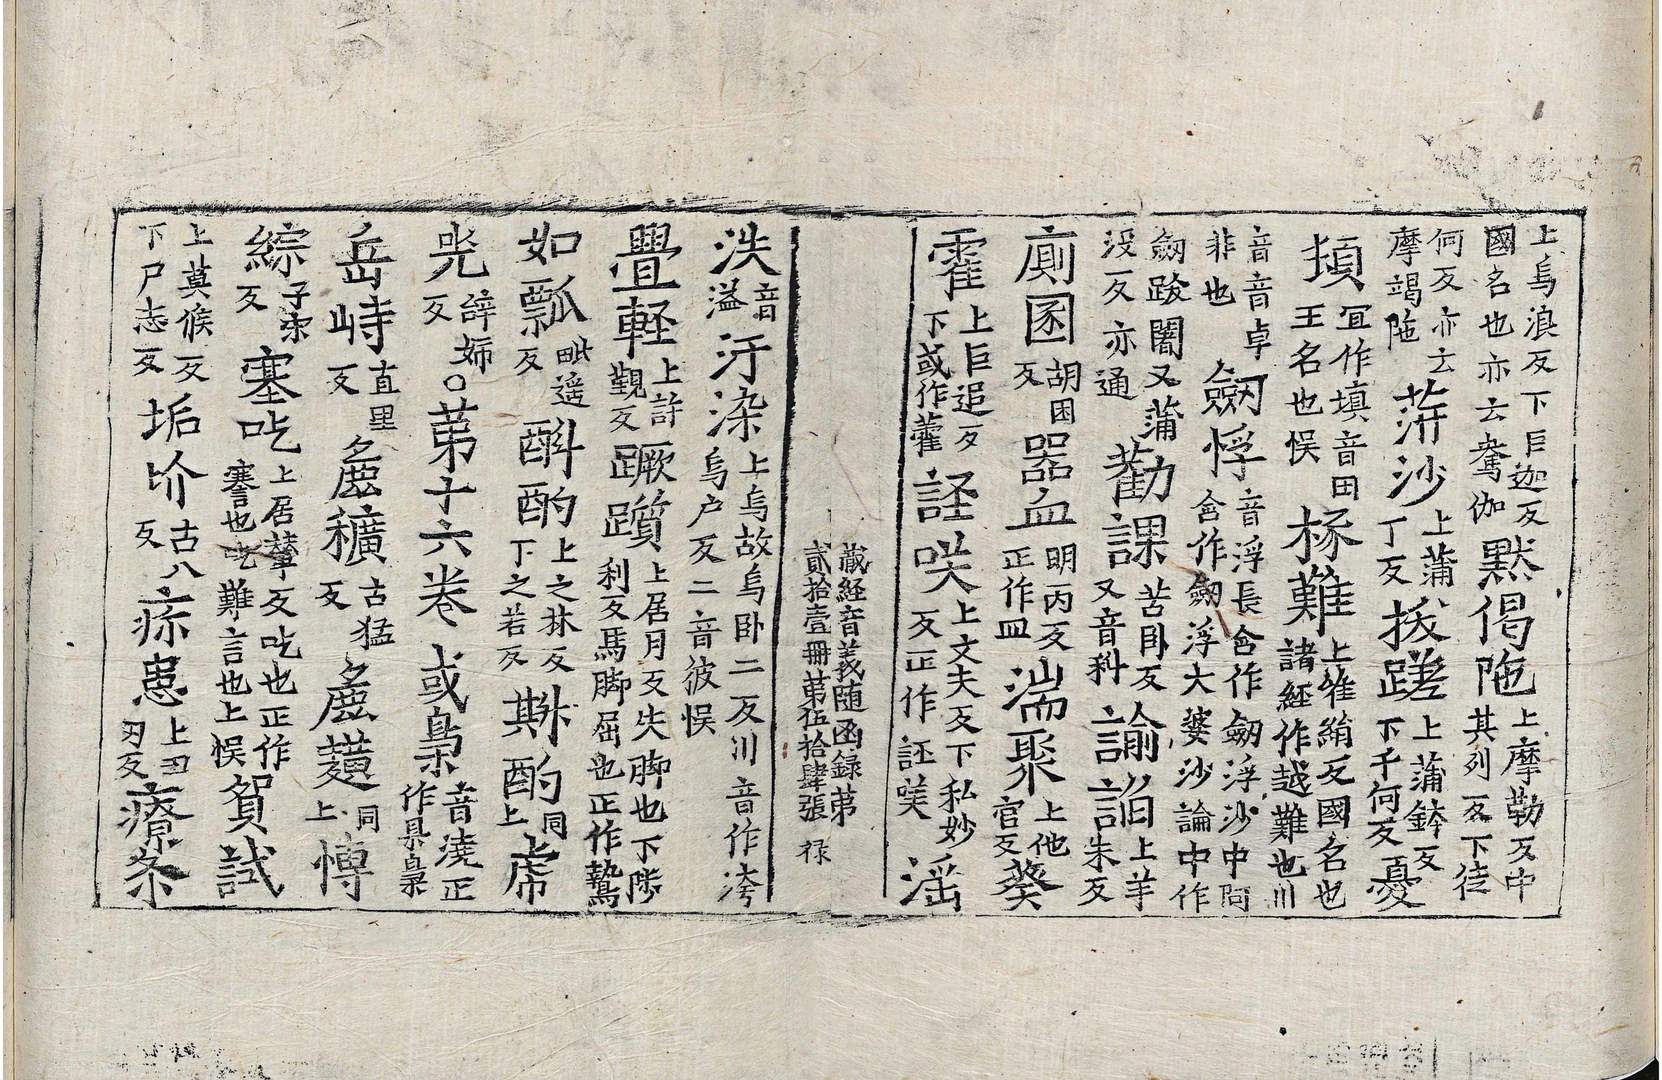 上烏浪反下巨迦反
國名也亦云鴦伽
默偈陁
上摩勒反中
其列反下徒
何反亦云
摩竭陁
蓱沙
上蒲
丁反
拔蹉
上蒲鉢反
下千何反
憂
填
冝作填音田
王名也悮
椽難
上雉絹反國名也
諸經作越難也川
音音卓
非也
劒浮
音浮長含作劒浮沙中阿
含作劒浮大婆沙論中作
劒跋闍又蒲
没反亦通
勸課
苦卧反
又音科
諭諂
上羊
朱反
廁圂
胡困
反
器血
明丙反
正作皿
湍聚
上他
官反
葵
藿
上巨追反
下或作藿
誣唉
上文夫反下私妙
反正作誣𠷂
淫
藏経音義随函録第
貳拾壹冊第伍拾肆張
禄
泆
音
溢
汙染
上烏故烏卧二反川音作洿
烏户反二音彼悮
疊軽
上許
觀反
蹶躓
上居月反失脚也下陟
利反馬脚屈也正作騺
如瓢
毗遥
反
斟酌
上之林反
下之若反
斟酌
同
上
虎
兕
辝姉
反
○第十六卷
或梟
音澆正
作県梟
岳峙
直里
反
麁穬
古猛
反
麁䵃
同
上
愽
綜
子宋
反
謇吃
上居輦反吃也正作
謇也吃難言也上悮
貿試
上莫候反
下尸志反
垢圿
古八
反
疢患
上丑
刃反
療条